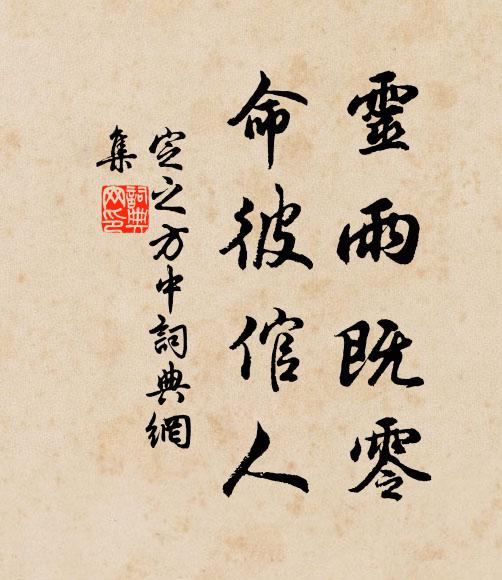 靈雨既零
命彼倌人
定之方中詞典網
集
詞典網印